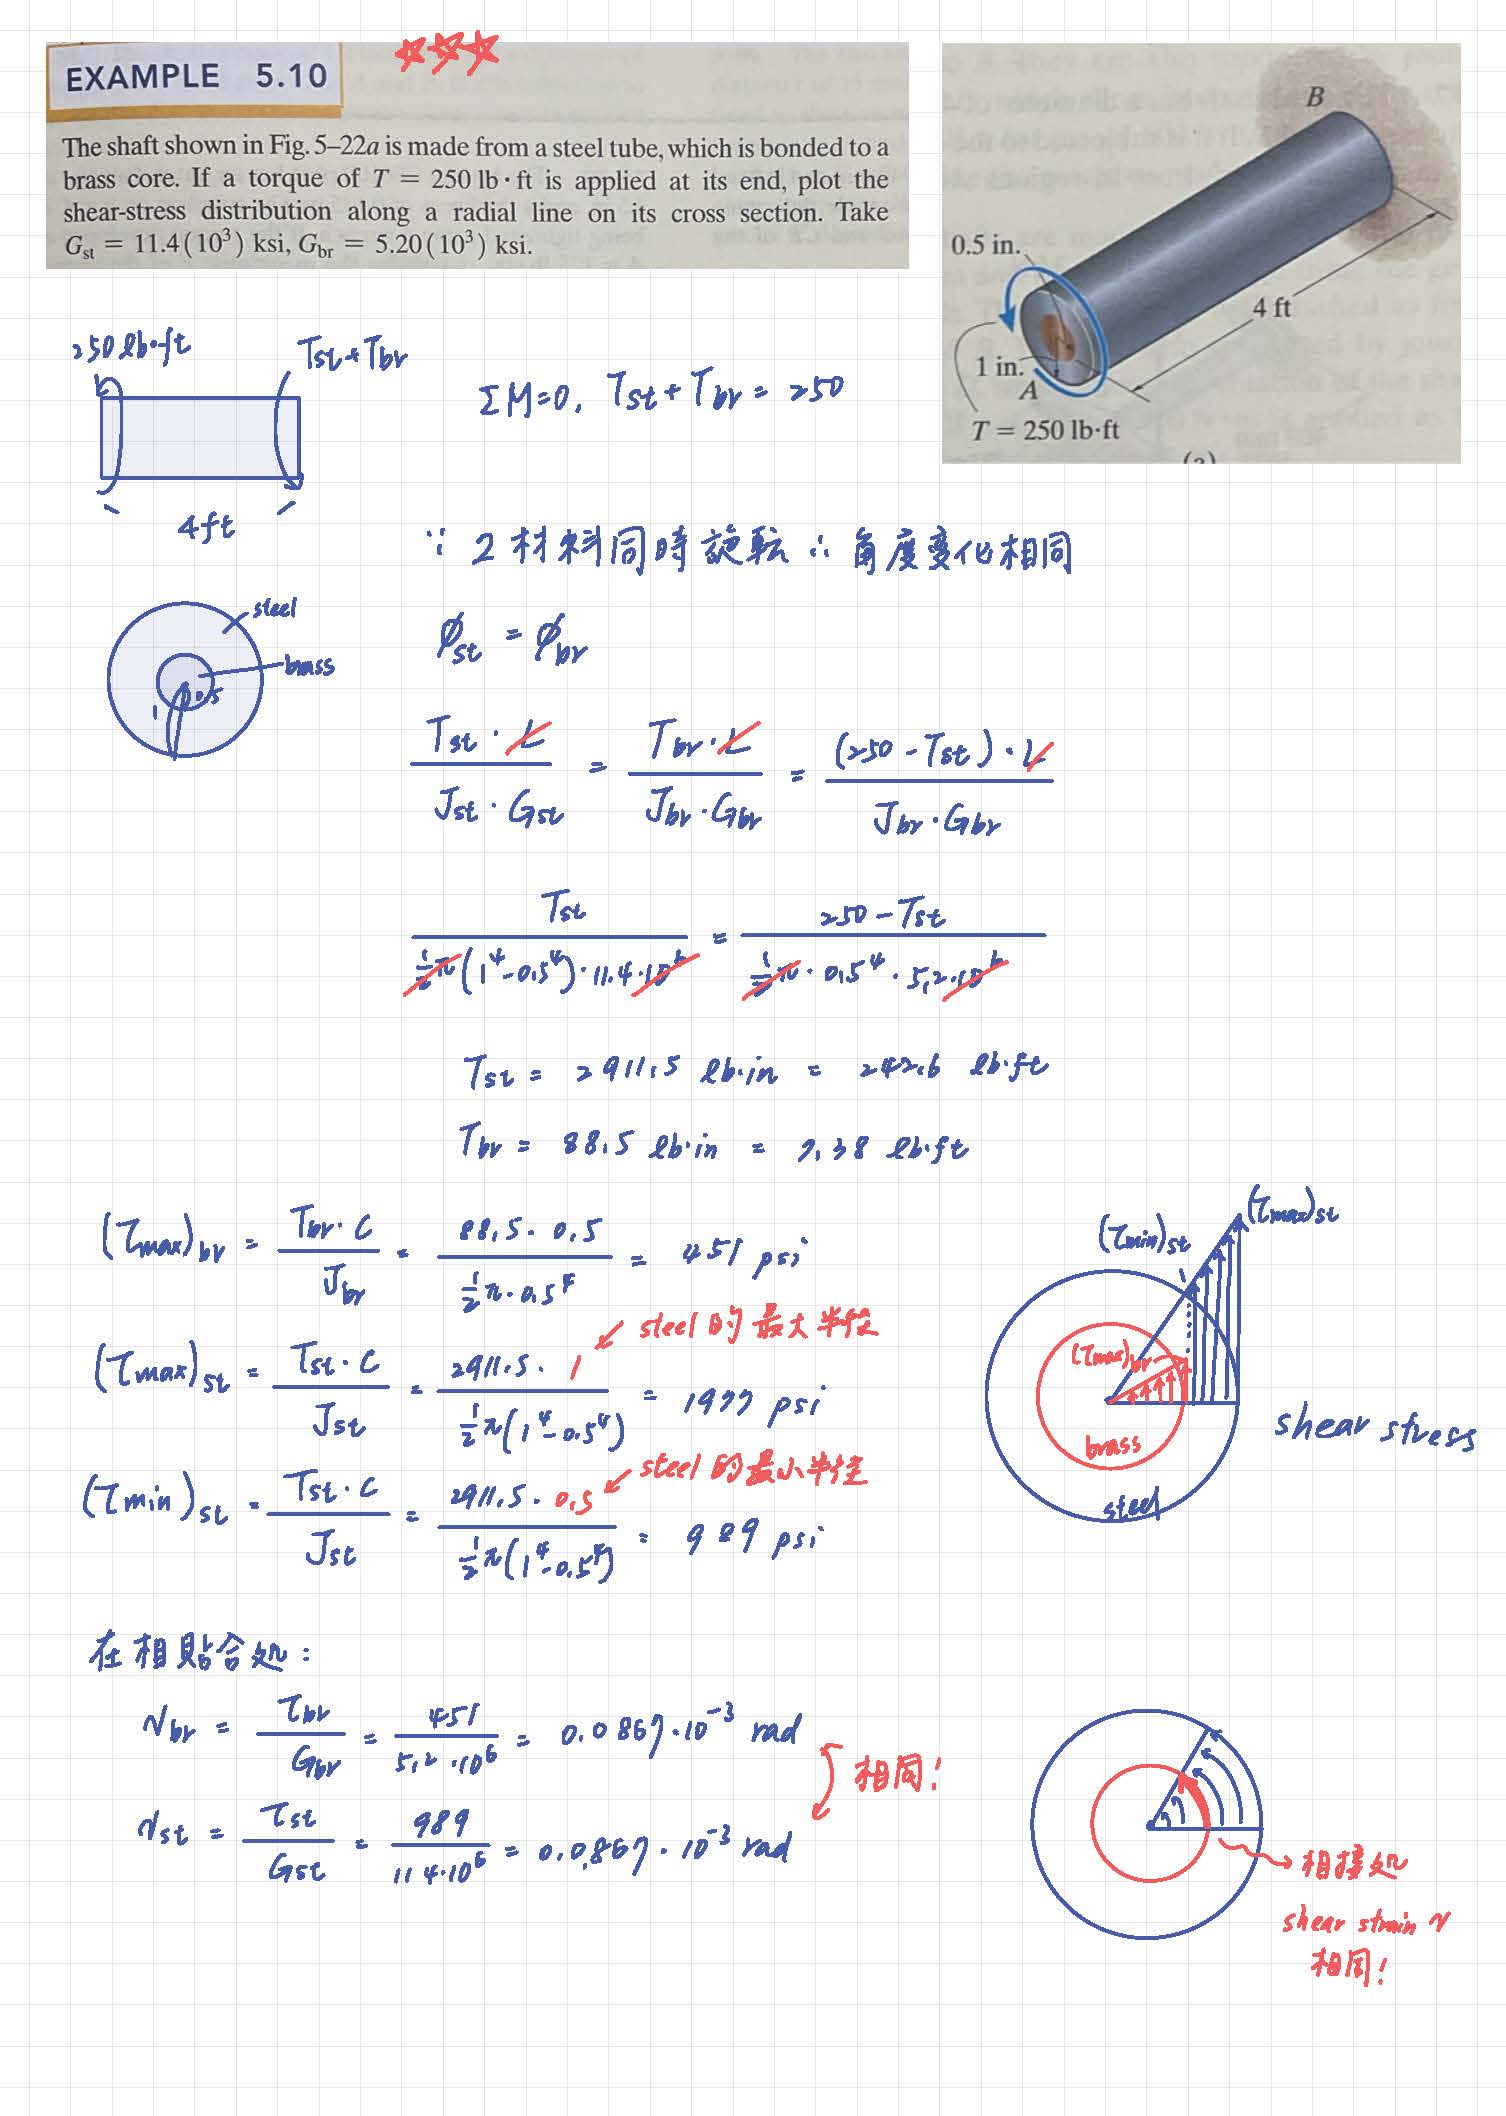 EXAMPLE 5.10
The shaft shown in Fig. 5–22a is made from a steel tube, which is bonded to a
brass core. If a torque of T = 250 lb·ft is applied at its end, plot the
shear-stress distribution along a radial line on its cross section. Take
G_st = 11.4(10³) ksi, G_br = 5.20(10³) ksi.
B
0.5 in.
4 ft
1 in.
A
T = 250 lb·ft
(a)
250 lb·ft
T_st + T_br
4ft
ΣM=0, T_st + T_br = 250
∵ 2材料同時旋転 ∴ 角度変化相同
steel
brass
0.5
1
ϕ_st = ϕ_br
T_st · L / J_st · G_st = T_br · L / J_br · G_br = (250 - T_st) · L / J_br · G_br
T_st / ½π(1⁴-0.5⁴)·11.4·10⁶ = 250 - T_st / ½π·0.5⁴·5.2·10⁶
T_st = 2911.5 lb·in = 242.6 lb·ft
T_br = 88.5 lb·in = 7.38 lb·ft
(τmax)_br = T_br · C / J_br = 88.5 · 0.5 / ½π·0.5⁴ = 451 psi
steel的最大半径
(τmax)_st = T_st · C / J_st = 2911.5 · 1 / ½π(1⁴-0.5⁴) = 1977 psi
steel的最小半径
(τmin)_st = T_st · C / J_st = 2911.5 · 0.5 / ½π(1⁴-0.5⁴) = 989 psi
(τmin)_st
(τmax)_st
(τmax)_br
brass
steel
shear stress
在相貼合処:
γ_br = τ_br / G_br = 451 / 5.2·10⁶ = 0.0867·10⁻³ rad
相同!
γ_st = τ_st / G_st = 989 / 11.4·10⁶ = 0.0867·10⁻³ rad
相接処
shear strain γ
相同!